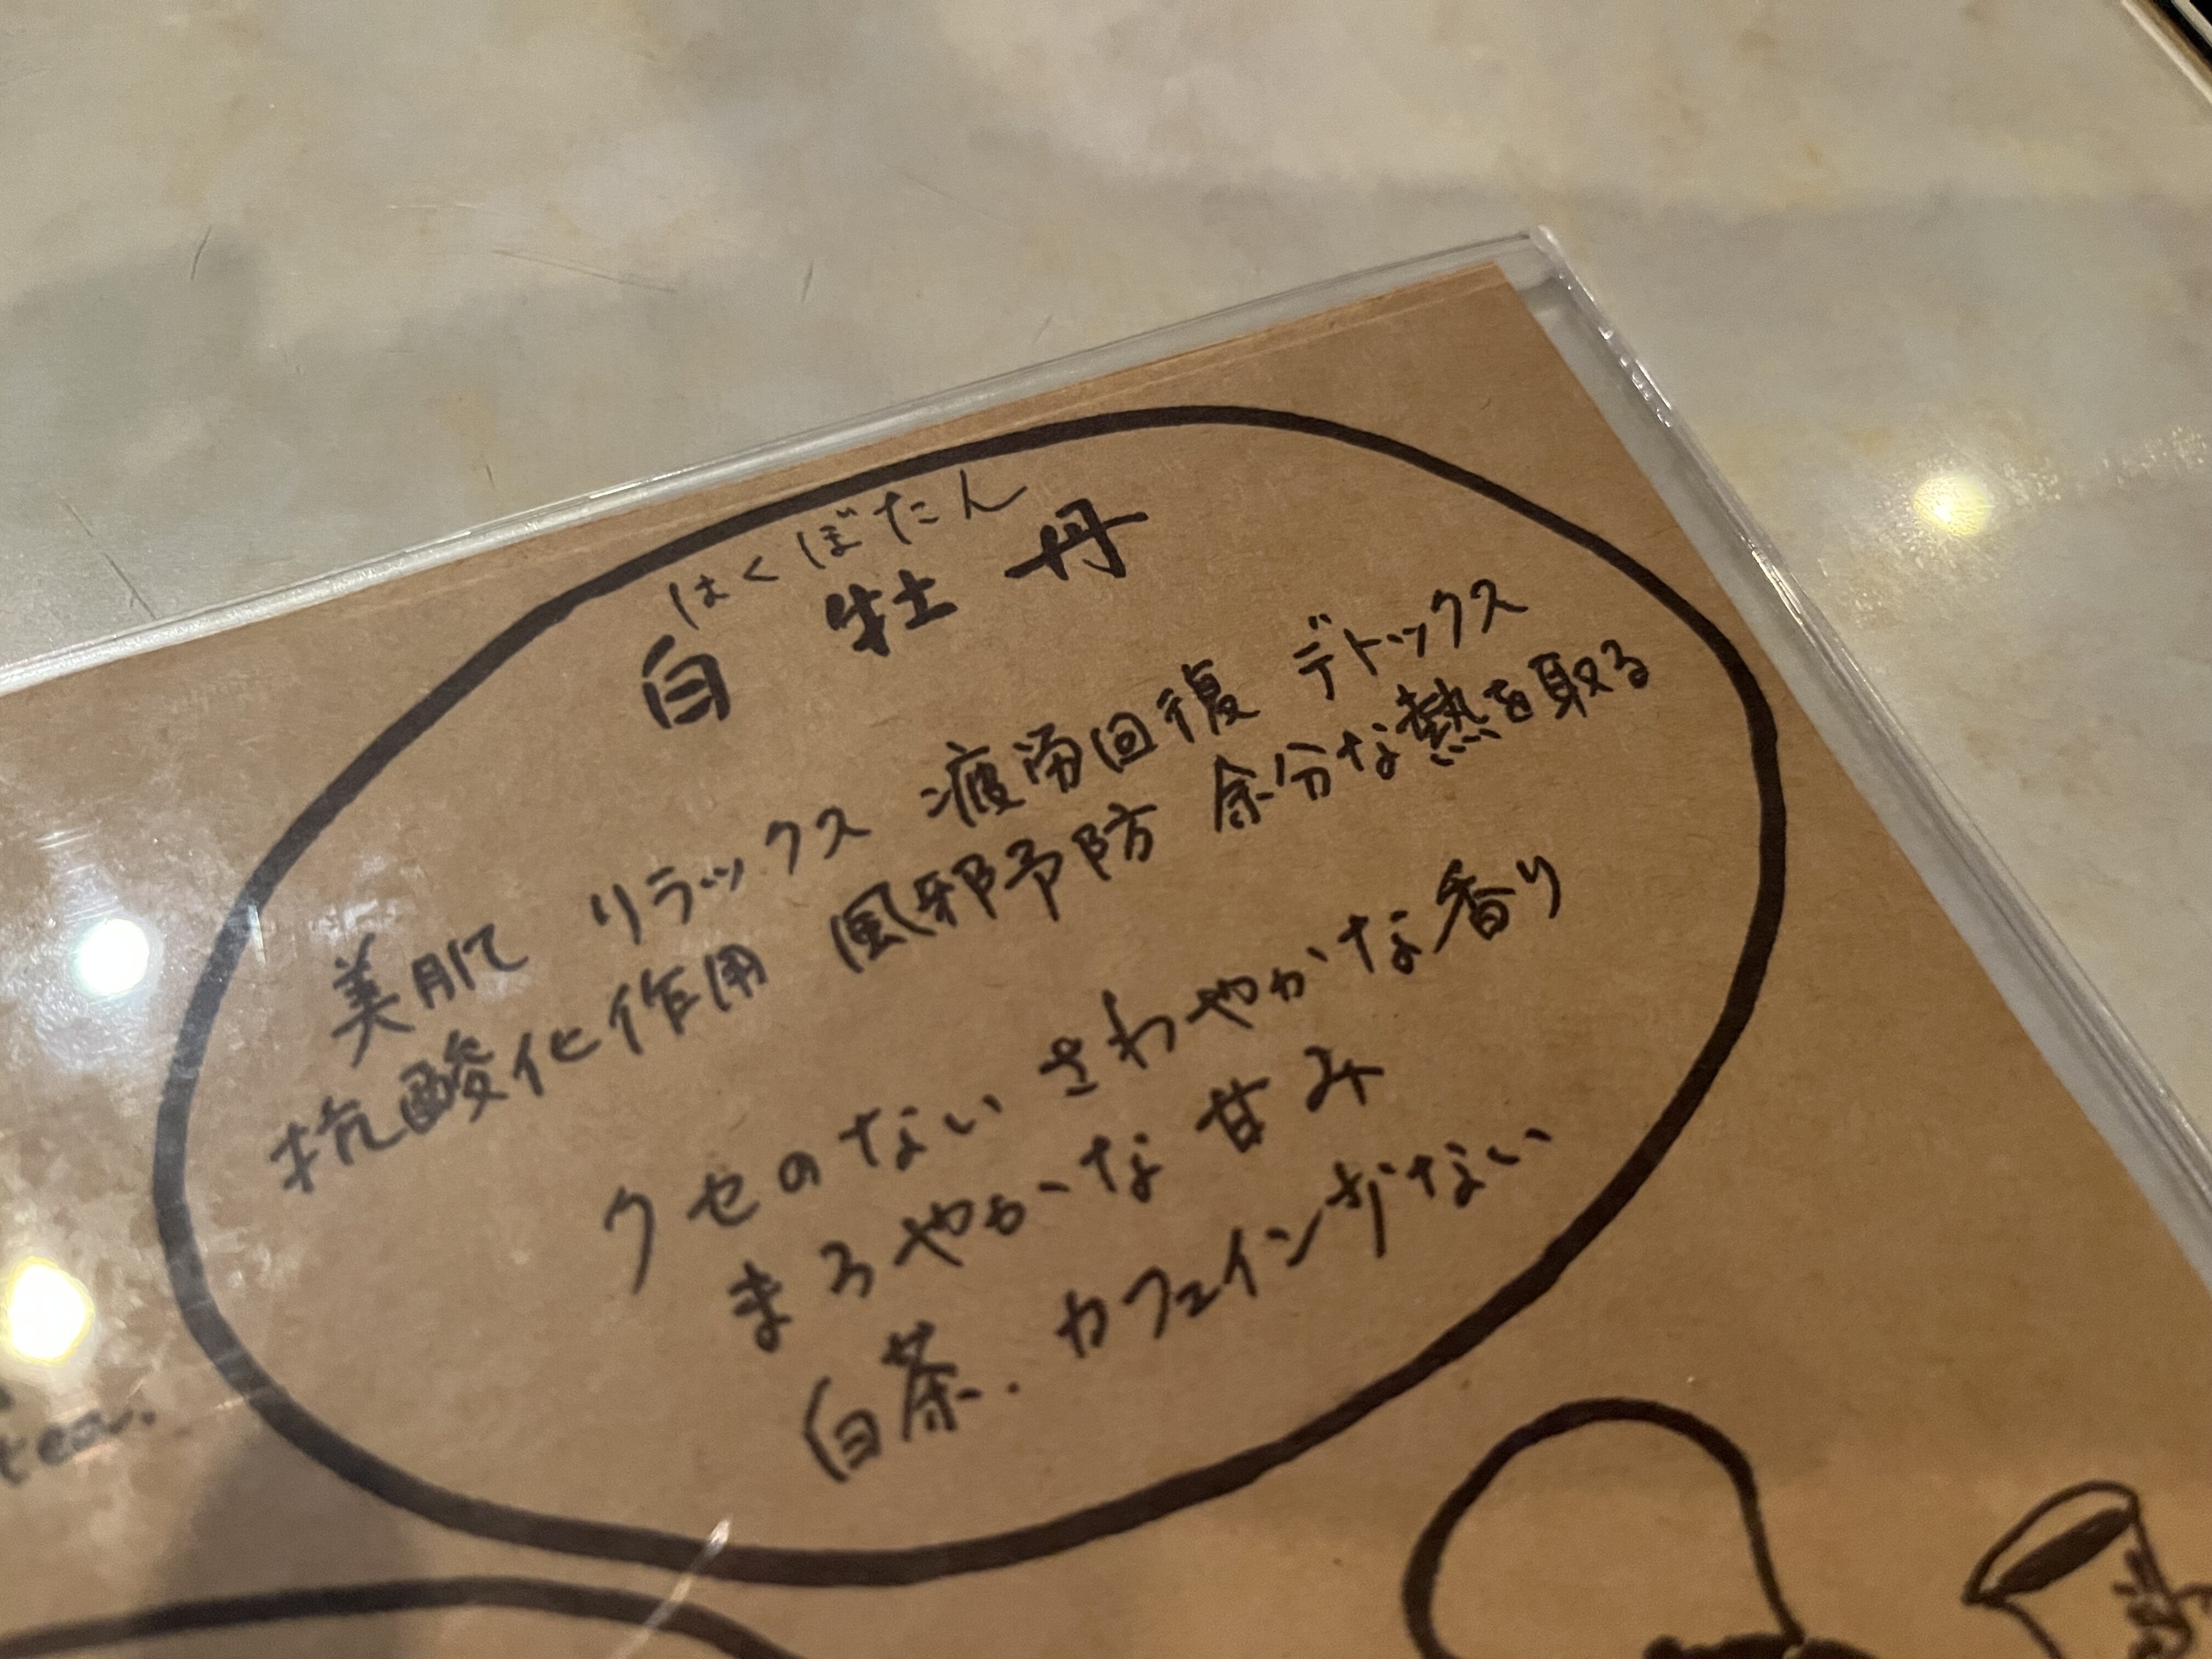 はくぼたん
白牡丹
美肌 リラックス 疲労回復 デトックス
抗酸化作用 風邪予防 余分な熱を取る
クセのない さわやかな香り
まろやかな甘み
白茶. カフェイン少ない
tea.